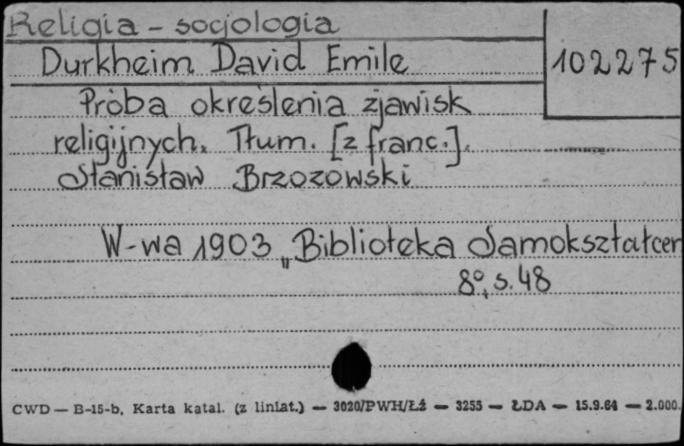 Religia - socjologia
Durkheim David Emile
102275
Próba określenia zjawisk
religijnych. Tłum. [z franc.].
Stanisław Brzozowski
W-wa 1903 „Biblioteka Samokształcen
8°, s. 48
CWD — B-15-b. Karta katal. (z liniat.) — 3020/PWH/Łż — 3255 — ŁDA — 15.9.64 — 2.000.